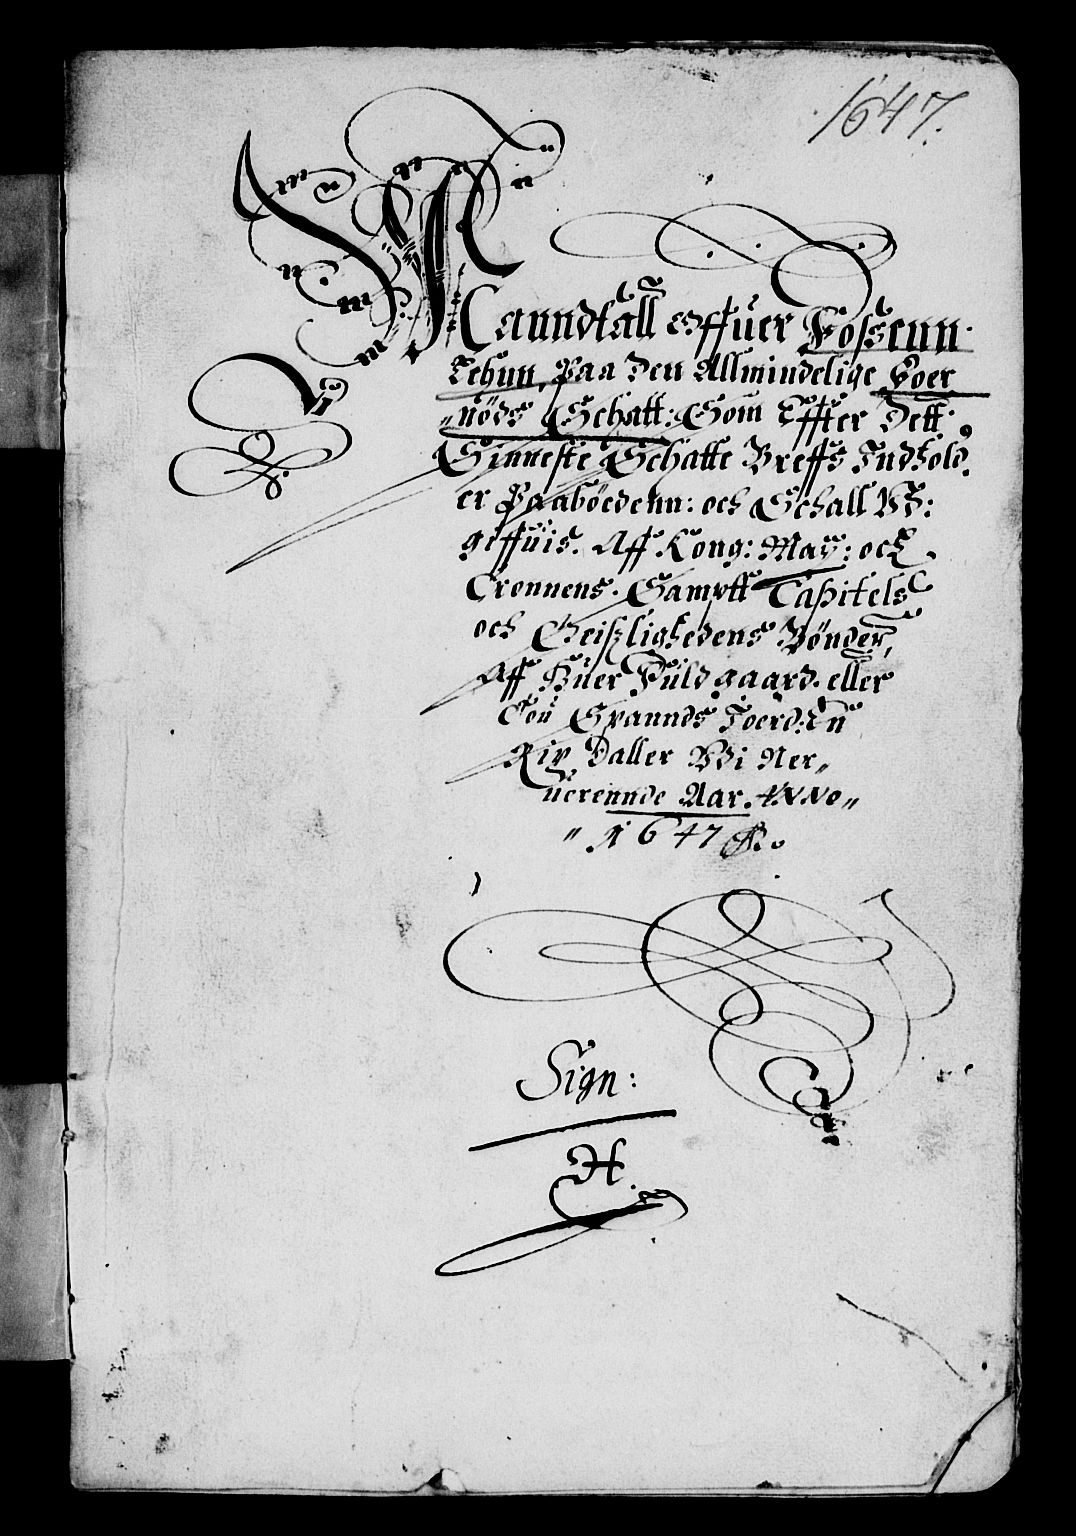 1647.
Manndtall offuer Fossenn
Lehnn, Paa den Allmindelige Foer
nöds Schatt: Som Effter Dett
Sinneste Schatte Breffs Indhold
er Paaböedenn: och Schall Wd:
giffuis. Aff Kong: May: och
Cronnens. Sampt Capitels
och Geistlighedens Bönder,
Aff Huer Fuld gaard. eller
Tou Spannds Joerd: En
Rix Daller Wdi Ner„
uerennde Aar. ANNo„
„ 1647
Sign:
H